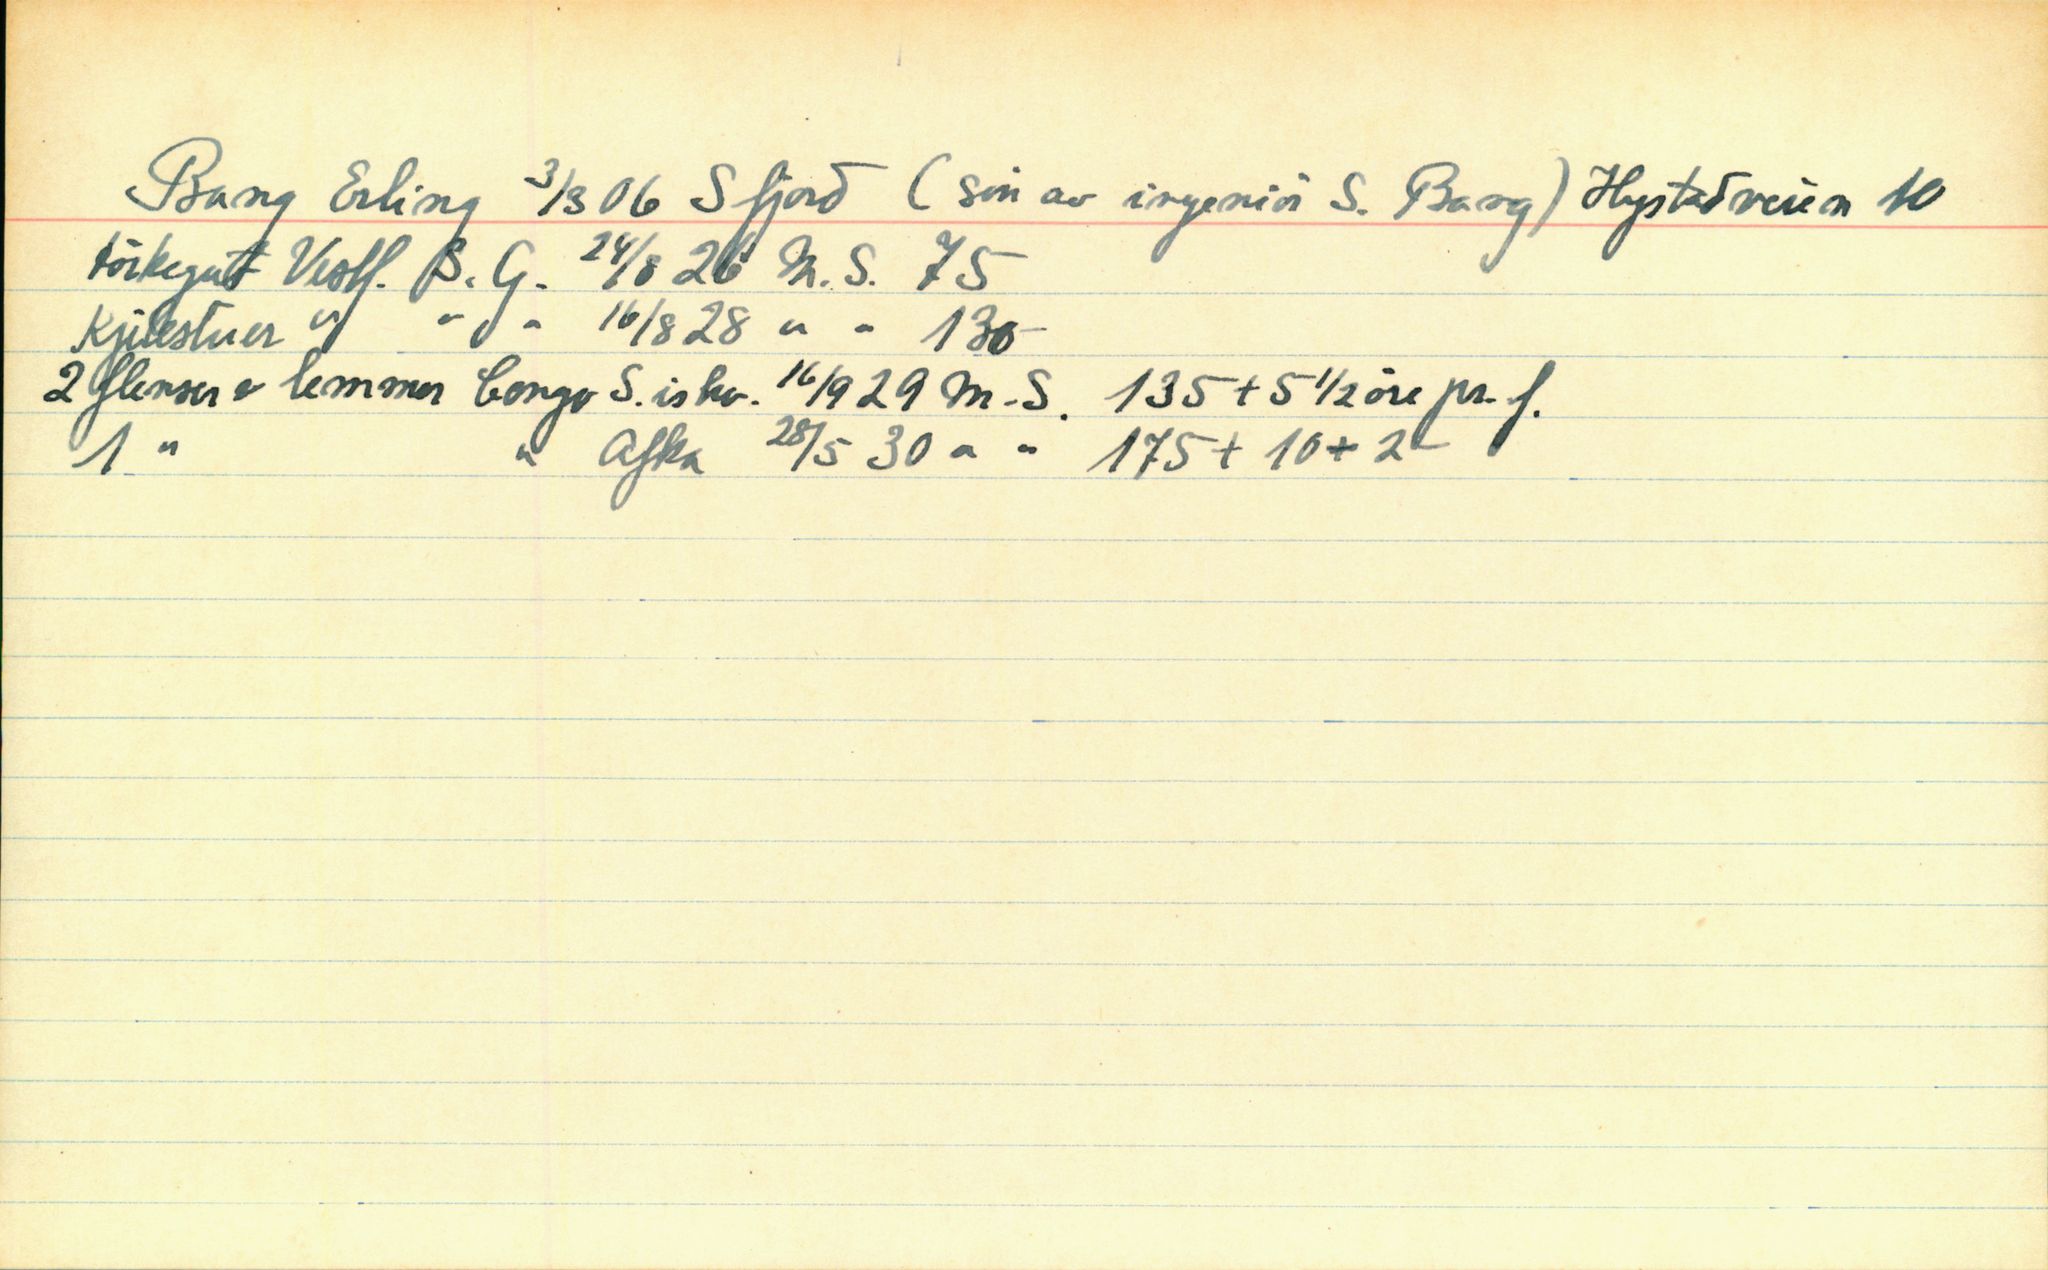 Bang Erling 3/3 06 Sfjord (sön av ingeniör S. Bang) Hystadveien 10
törkegutt Vestf. S. G. 24/8 26 M. S. 75
Kjökstuer " " " 16/8 28 " " 130-
2 flenser & lemmer Congo S. isha. 16/9 29 M. S. 135 + 5 1/2 öre pr. f.
1 " " Afka 28/5 30 " " 175 + 10 + 2-